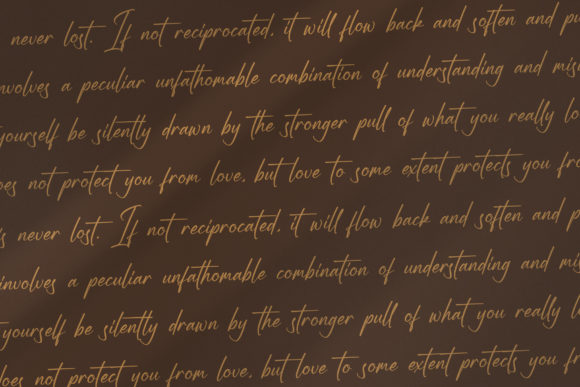 never lost. If not reciprocated, it will flow back and soften and pu
nvolves a peculiar unfathomable combination of understanding and mis
yourself be silently drawn by the stronger pull of what you really lo
oes not protect you from love, but love to some extent protects you fro
s never lost. If not reciprocated, it will flow back and soften and p
involves a peculiar unfathomable combination of understanding and mis
yourself be silently drawn by the stronger pull of what you really l
oes not protect you from love, but love to some extent protects you fr